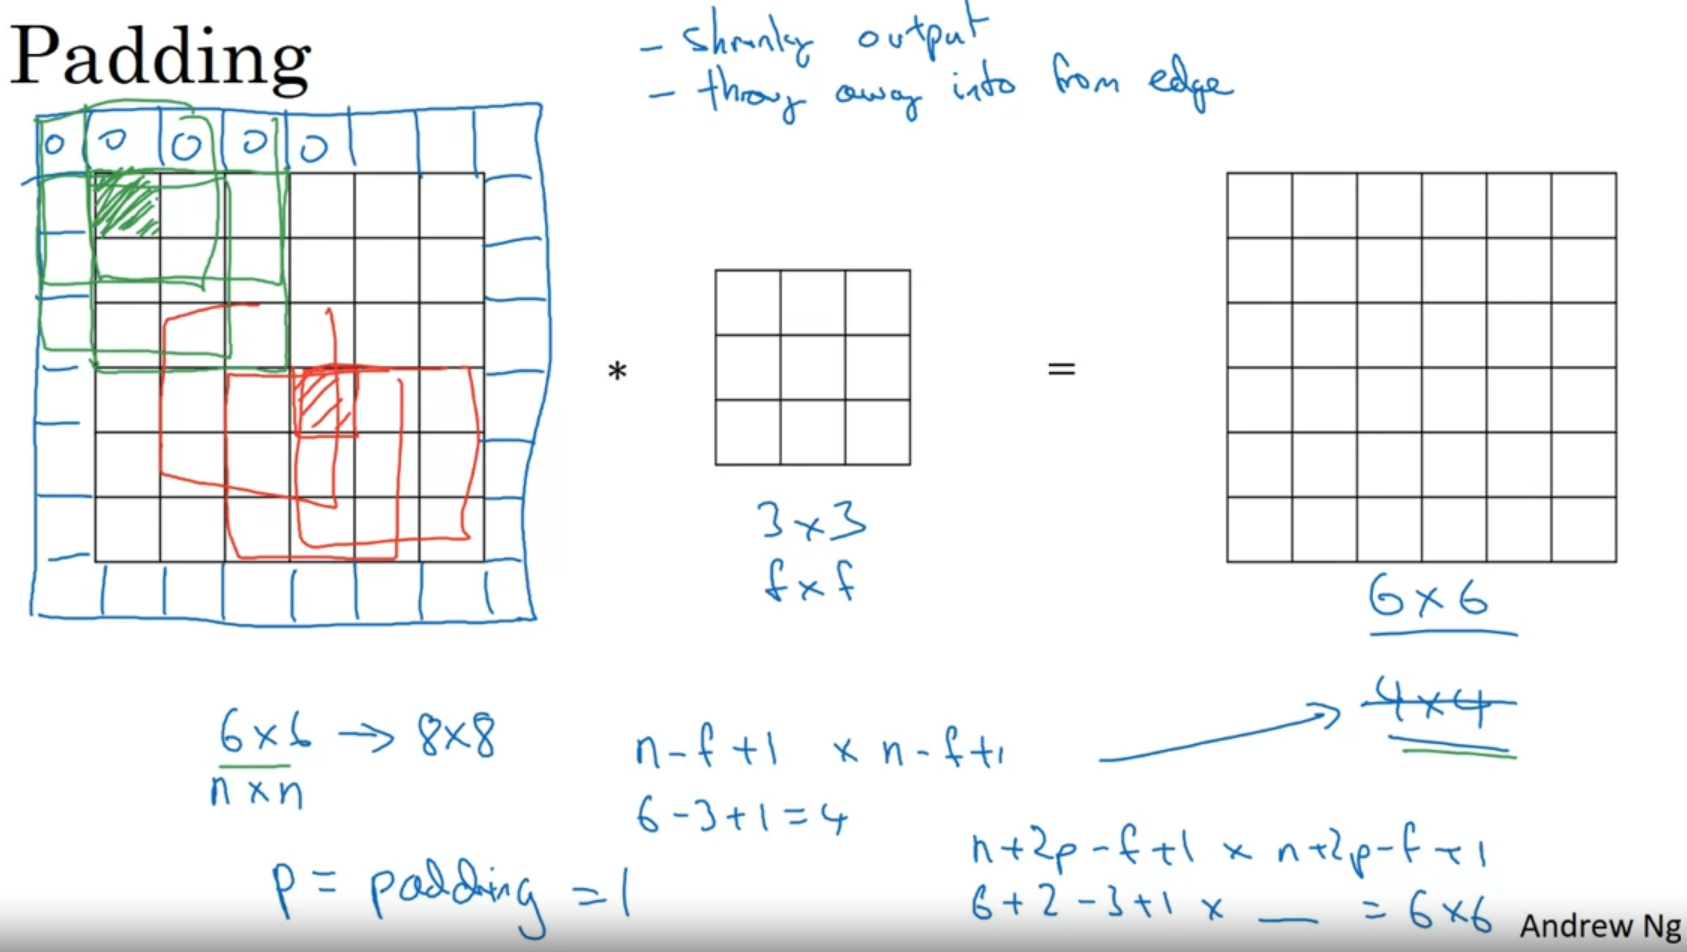 Padding
- shrinky output
- throw away info from edge
0 0 0 0 0
*
=
3 x 3
f x f
6 x 6
4 x 4
6 x 6 → 8 x 8
n x n
n - f + 1 x n - f + 1
6 - 3 + 1 = 4
p = padding = 1
n + 2p - f + 1 x n + 2p - f + 1
6 + 2 - 3 + 1 x __ = 6 x 6
Andrew Ng